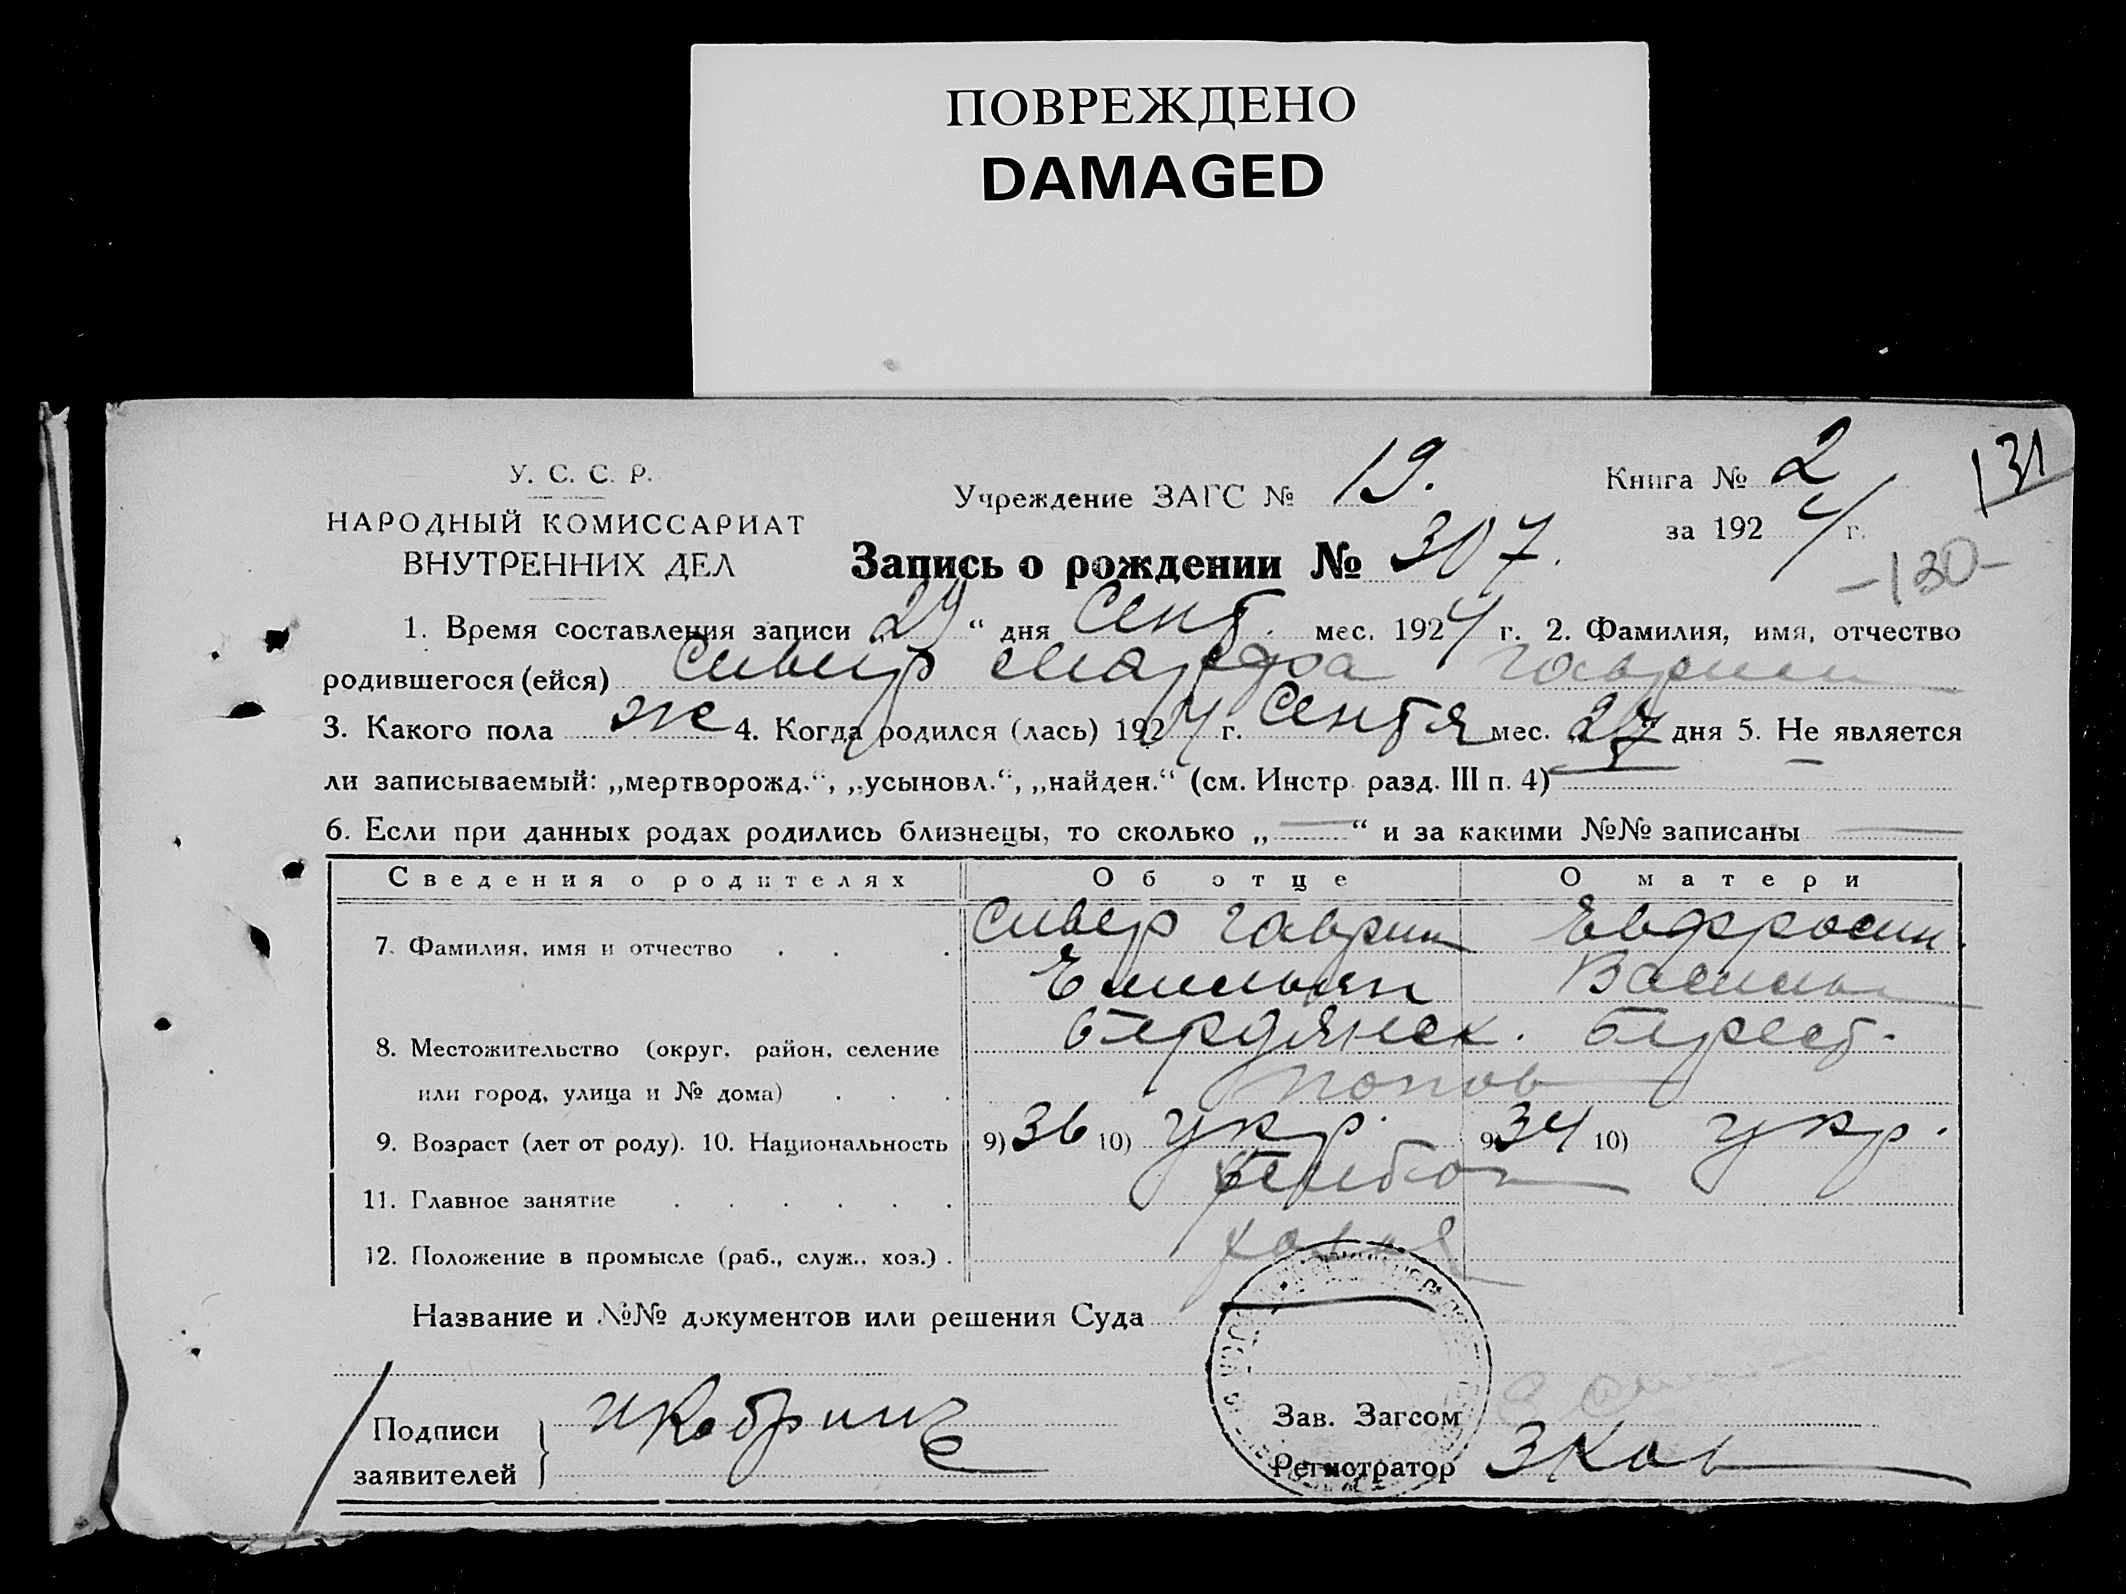 ПОВРЕЖДЕНО
DAMAGED
У. С. С. Р.
НАРОДНЫЙ КОМИССАРИАТ
ВНУТРЕННИХ ДЕЛ
Учреждение ЗАГС № 19.
Книга № 2
за 1924 г.
131
-130-
Запись о рождении № 307.
1. Время составления записи „29“ дня Сент. мес. 1924 г. 2. Фамилия, имя, отчество
родившегося (ейся) Сивер Гаврил
3. Какого пола ж 4. Когда родился (лась) 1924 г. Сентя мес. „27“ дня 5. Не является
ли записываемый: „мертворожд.“, „усыновл.“, „найден.“ (см. Инстр. разд. III п. 4)
6. Если при данных родах родились близнецы, то сколько „—“ и за какими №№ записаны —
Сведения о родителях Об отце О матери
7. Фамилия, имя и отчество . . . Сивер Гаврил Евфросин.
Емельян Василь
8. Местожительство (округ, район, селение Бердянск.
или город, улица и № дома) . . . Попов
9. Возраст (лет от роду). 10. Национальность 9) 36 10) укр. 9) 34 10) укр.
11. Главное занятие . . . . . .
12. Положение в промысле (раб., служ., хоз.) .
Название и №№ документов или решения Суда
Подписи
заявителей
Зав. Загсом
Регистратор